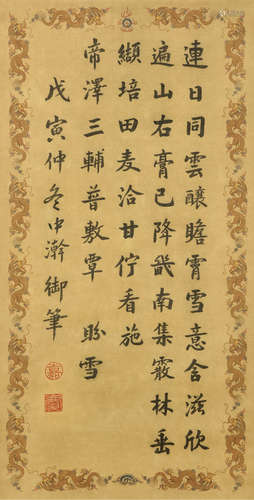 連日同雲釀瞻霄雪意含滋欣
遍山右膏已降畿南集霰林垂
纈培田麦洽甘佇看施
帝澤三輔普敷覃 盼雪
戊寅仲冬中澣御筆